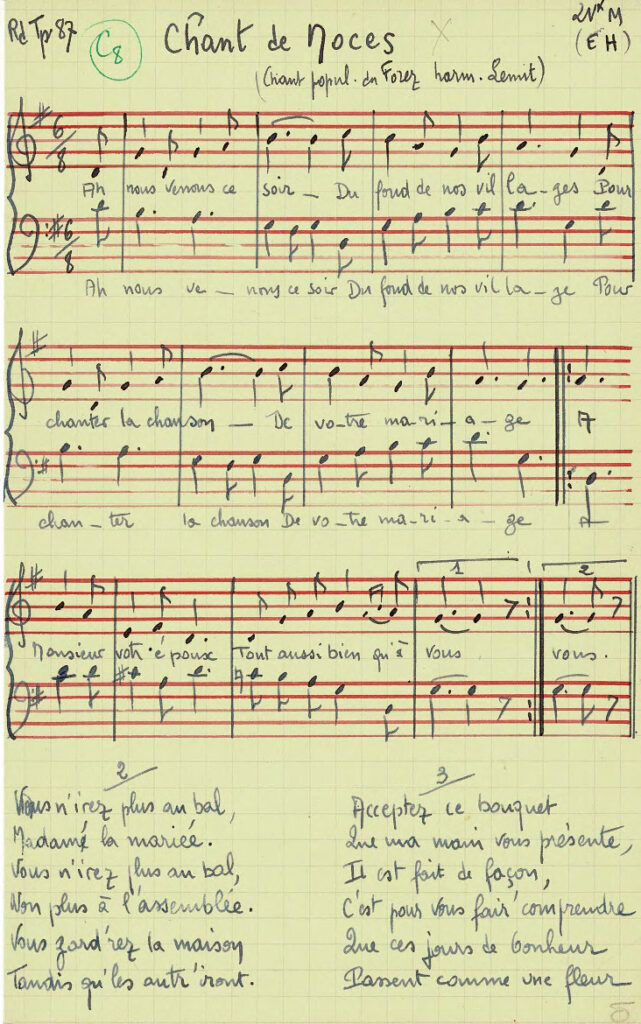 Rd Tp 87
C8
Chant de Noces
2 Vx M
(E H)
(Chant popul. du Forez harm. Lemit)
6/8
Ah nous venons ce soir _ Du fond de nos vil la_ges Pour
6/8
Ah nous ve _ nons ce soir Du fond de nos vil la_ge Pour
chanter la chanson _ De vo_tre ma_ri_a_ge A
chan_ter la chanson De vo_tre ma_ri_a_ge A
1 2
Monsieur votr' époux Tout aussi bien qu'à vous vous.
2
Vous n'irez plus au bal,
Madame la mariée.
Vous n'irez plus au bal,
Non plus à l'assemblée.
Vous gard'rez la maison
Tandis qu'les autr' iront.
3
Acceptez ce bouquet
Que ma main vous présente,
Il est fait de façon,
C'est pour vous fair' comprendre
Que ces jours de bonheur
Passent comme une fleur